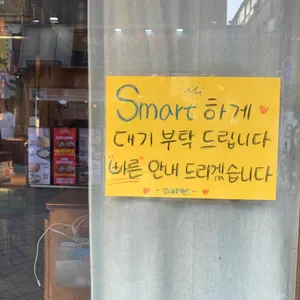 Smart 하게
대기 부탁 드립니다
"빠른" 안내 드리겠습니다